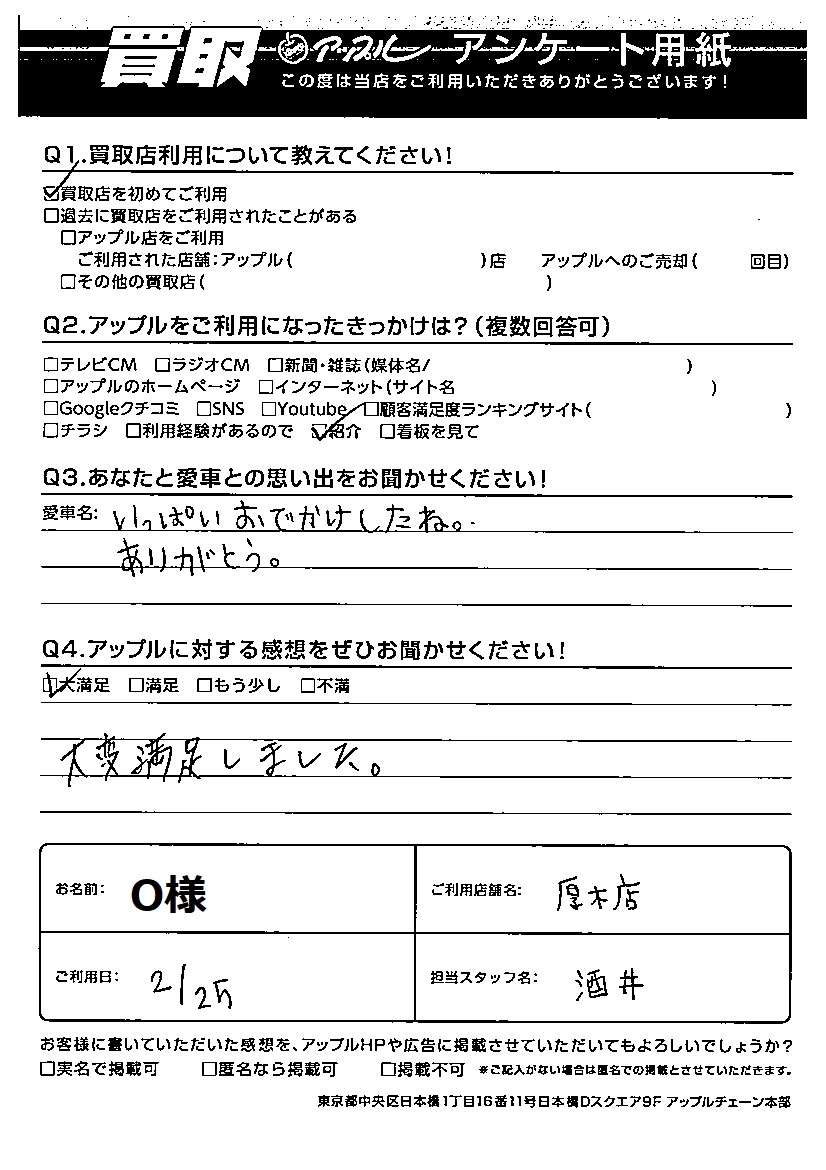 買取 アップル アンケート用紙
この度は当店をご利用いただきありがとうございます!
Q1.買取店利用について教えてください!
☑買取店を初めてご利用
□過去に買取店をご利用されたことがある
□アップル店をご利用
ご利用された店舗:アップル( )店 アップルへのご売却( 回目)
□その他の買取店( )
Q2.アップルをご利用になったきっかけは?(複数回答可)
□テレビCM □ラジオCM □新聞・雑誌(媒体名/ )
□アップルのホームページ □インターネット(サイト名 )
□Googleクチコミ □SNS □Youtube □顧客満足度ランキングサイト( )
□チラシ □利用経験があるので ☑紹介 □看板を見て
Q3.あなたと愛車との思い出をお聞かせください!
愛車名: いっぱいおでかけしたね。
ありがとう。
Q4.アップルに対する感想をぜひお聞かせください!
☑大満足 □満足 □もう少し □不満
大変満足しました。
お名前: O様 ご利用店舗名: 厚木店
ご利用日: 2/25 担当スタッフ名: 酒井
お客様に書いていただいた感想を、アップルHPや広告に掲載させていただいてもよろしいでしょうか?
□実名で掲載可 □匿名なら掲載可 □掲載不可 ※ご記入がない場合は匿名での掲載とさせていただきます。
東京都中央区日本橋1丁目16番11号日本橋Dスクエア9F アップルチェーン本部